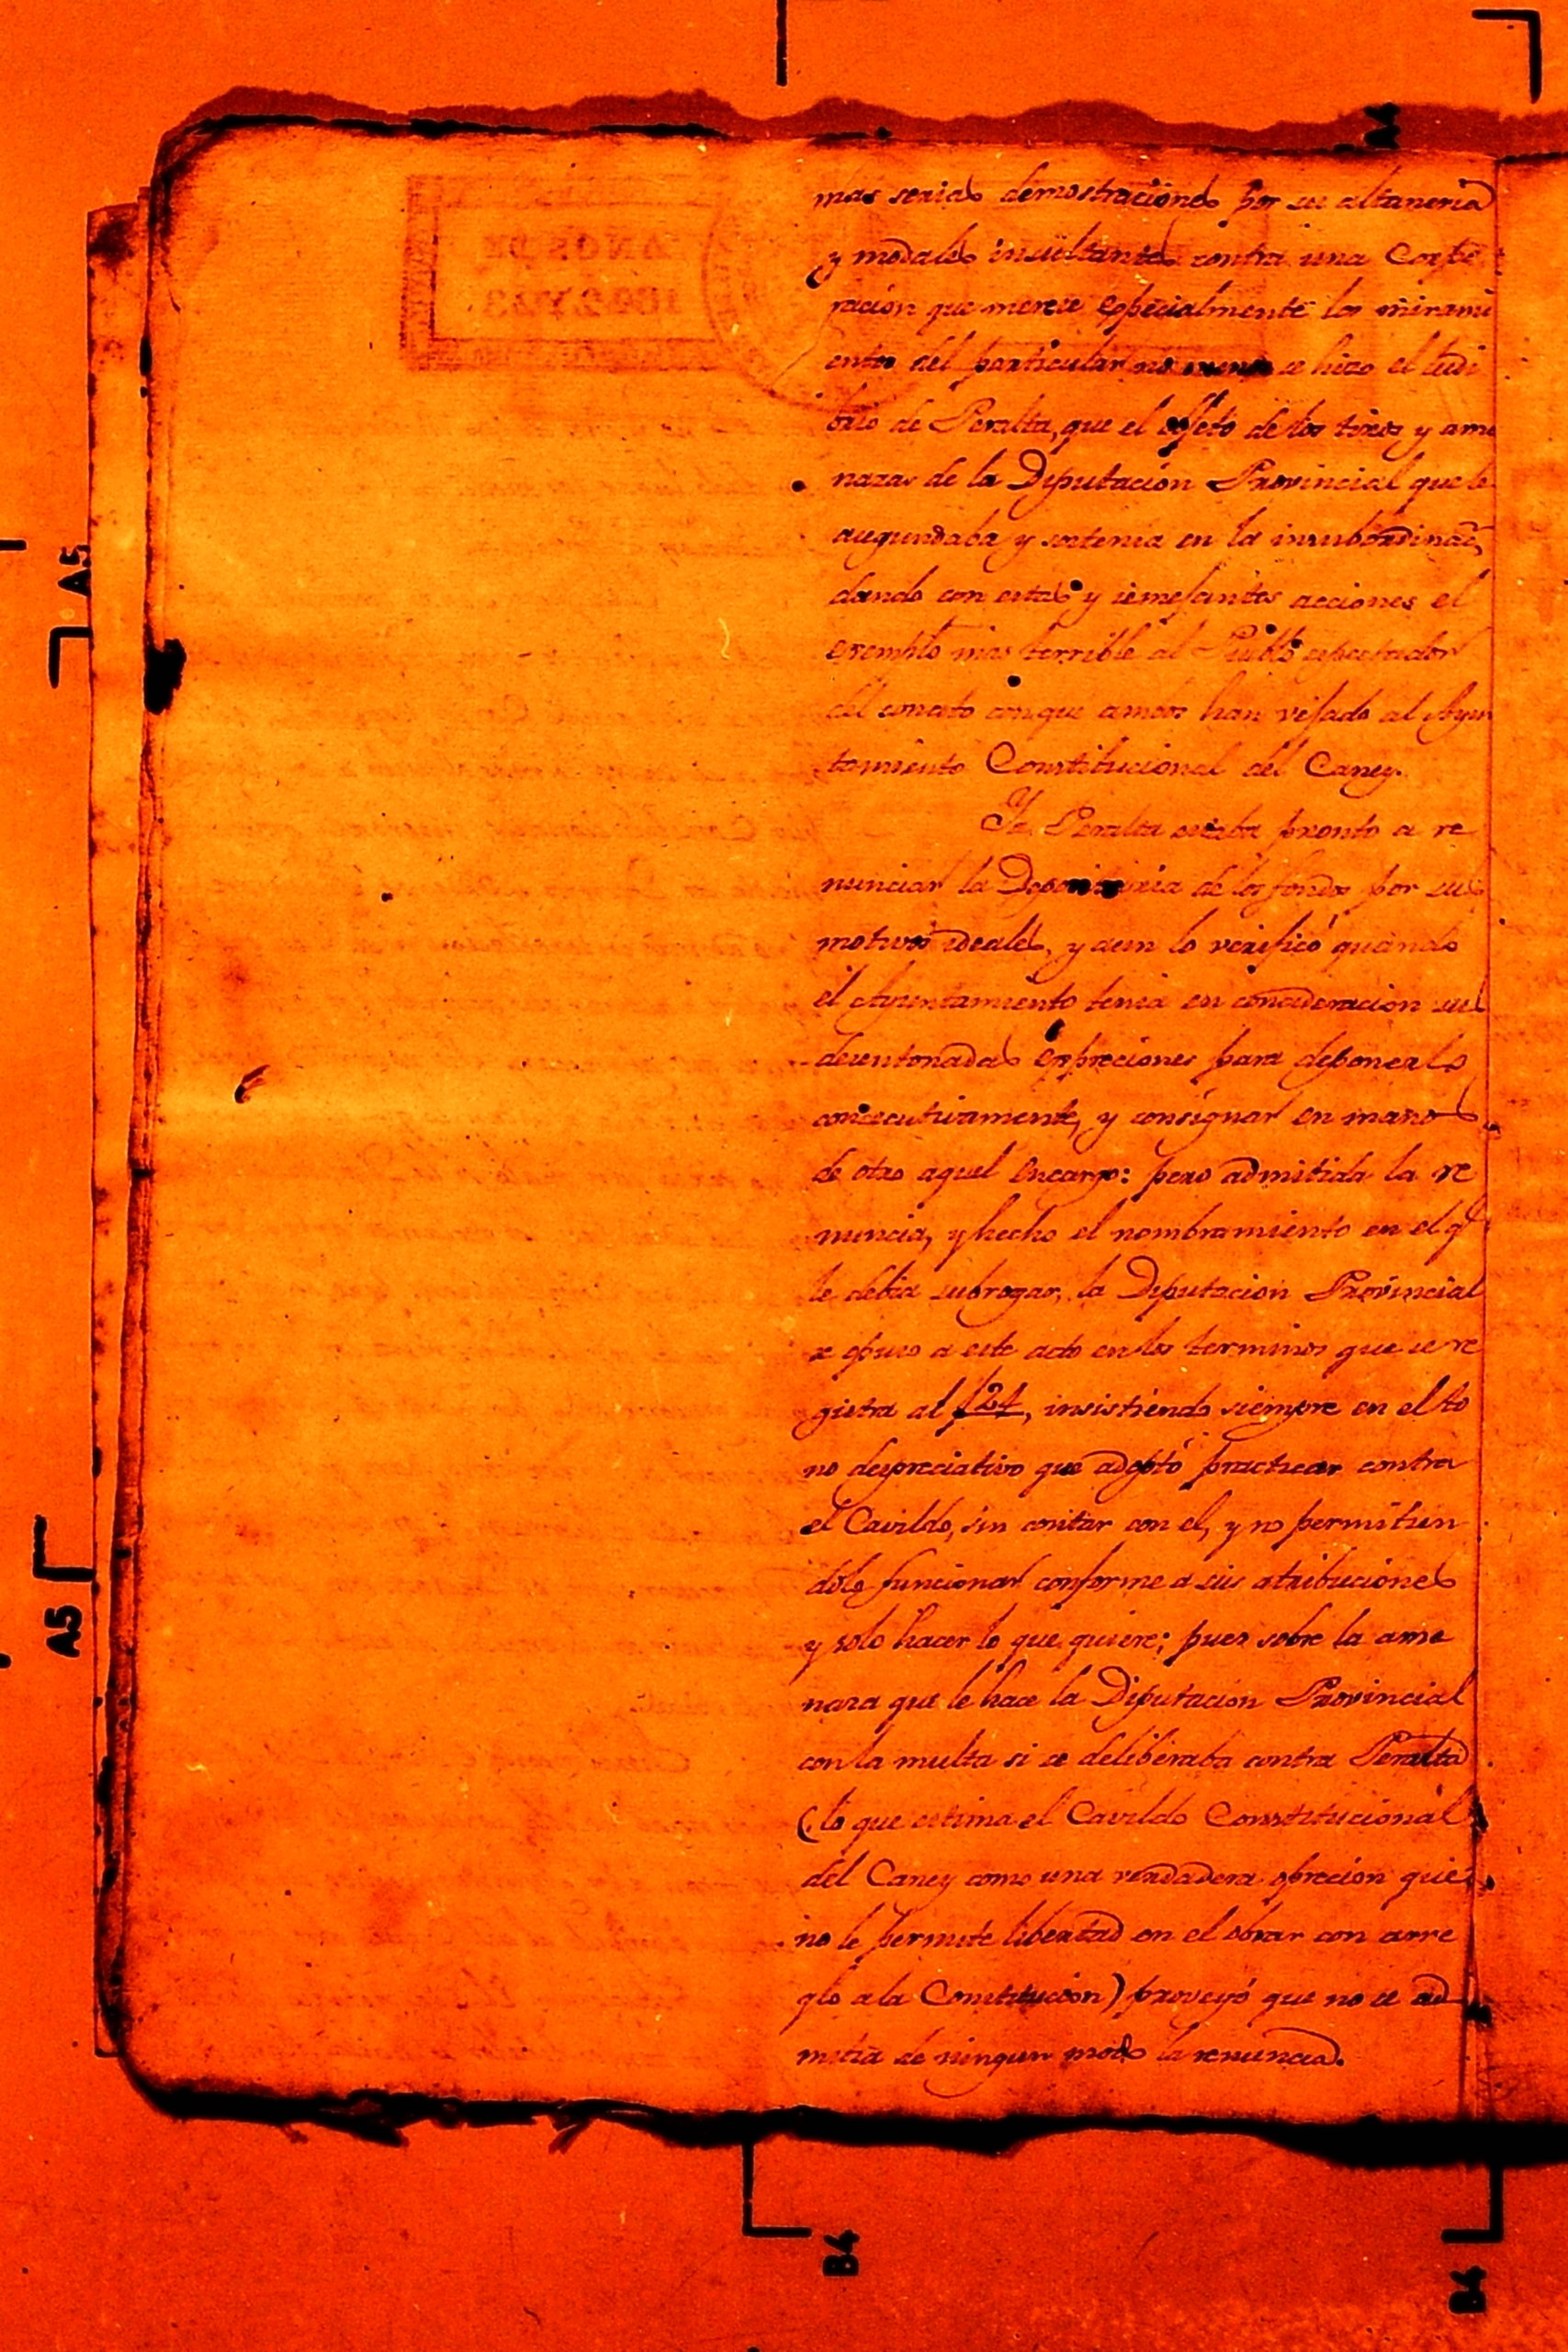 mas serias demostraciones por su altaneria
y modales insultantes contra una Corpo
racion que merece especialmente los mirami
entos del particular no menos se hizo el ludi
brio de Peralta, que el objeto de los tiros y ame
nazas de la Diputacion Provincial que le
augundaba y sostenia en la insubordinac.n
dando con estas y semejantes acciones el
exemplo mas terrible al Pueblo espectador
del conato con que ambos han vejado al Ayun
tamiento Constitucional del Caney.
Ya Peralta estaba pronto a re
nunciar la Depositaria de los fondos por sus
motivos ideales, y aun lo verificó quando
el Ayuntamiento tenia en concideracion sus
desentonadas expreciones para deponerlo
concecutivamente, y consignar en manos
de otro aquel encargo: pero admitida la re
nuncia, y hecho el nombramiento en el q.e
le debia subrogar, la Diputacion Provincial
se opuso a este acto en los terminos que se re
gistra al f 24, insistiendo siempre en el to
no despreciativo que adoptó practicar contra
el Cavildo, sin contar con el, y no permitien
dole funcionar conforme a sus atribuciones
y solo hacer lo que quiere; pues sobre la ame
naza que le hace la Diputacion Provincial
con la multa si se deliberaba contra Peralta
(lo que estima el Cavildo Constitucional
del Caney como una verdadera opresion que
no le permite libertad en el obrar con arre
glo a la Constitucion) proveyó que no se ad
mitia de ningun modo la renuncia.
A5
A5
A4
B4
B4